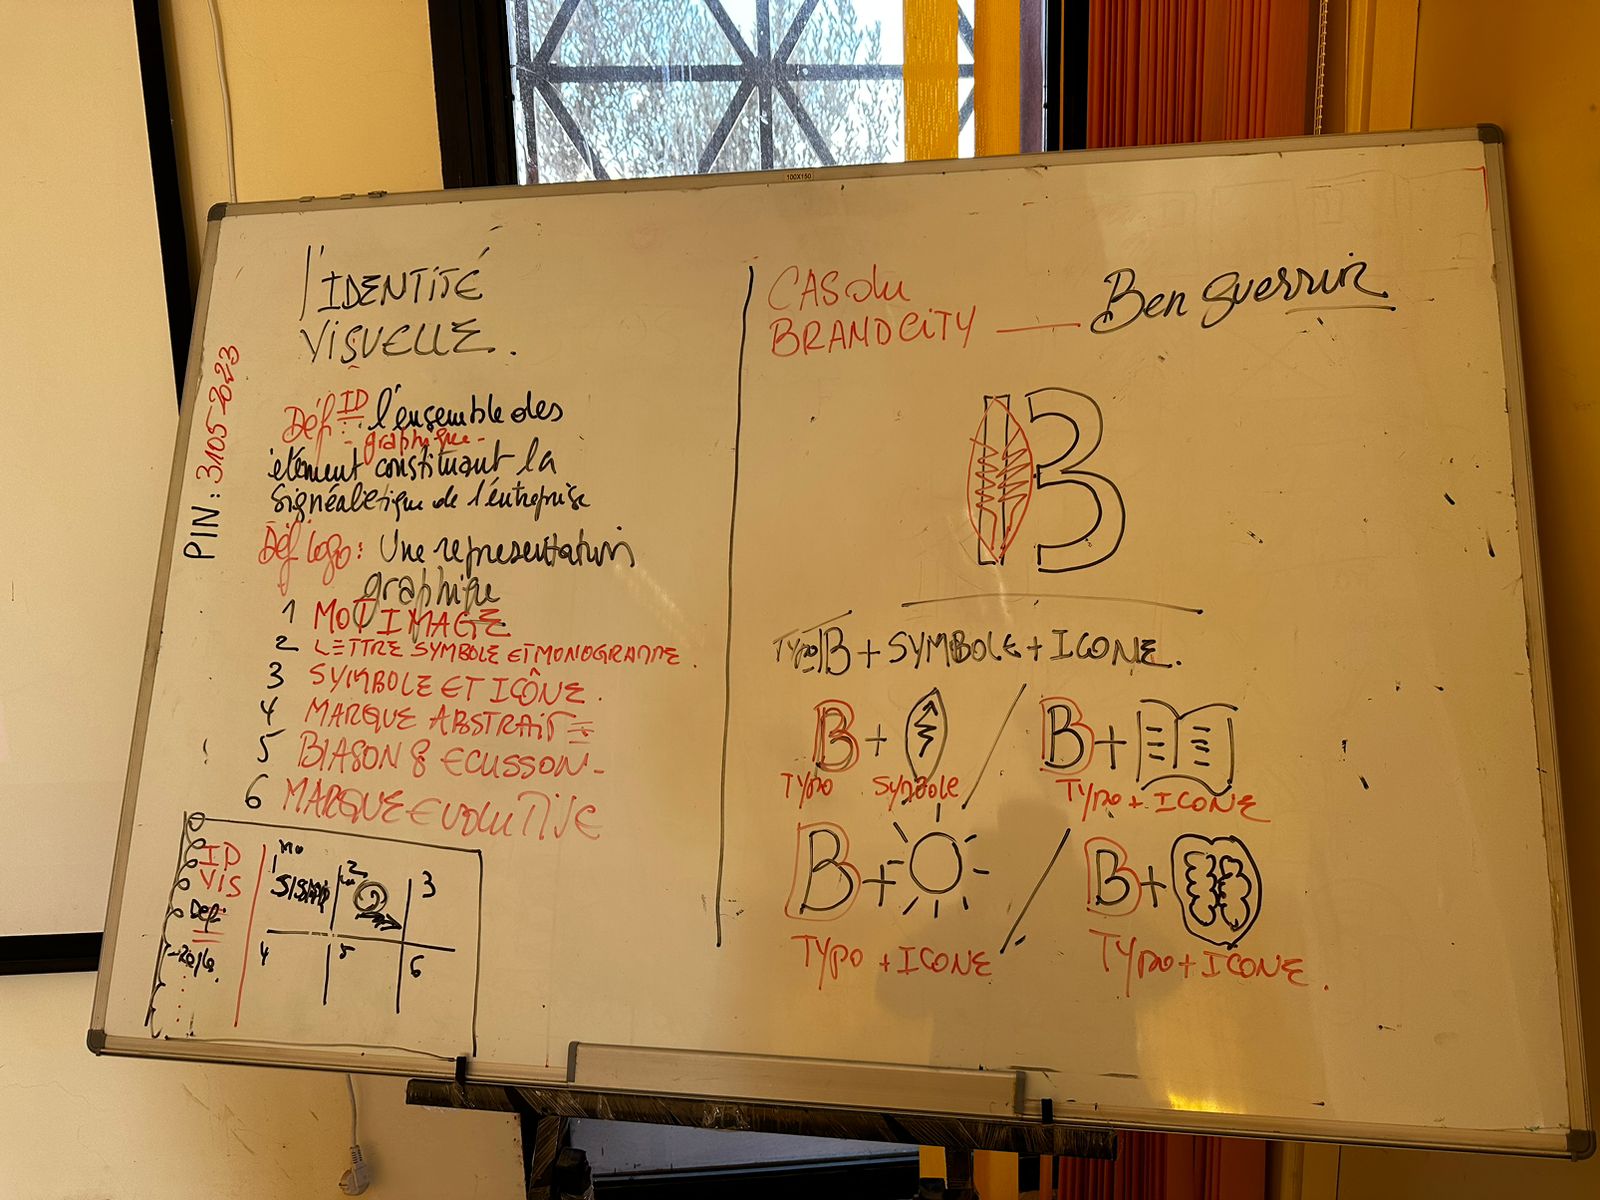 100X150
l'IDENTITÉ
VISUELLE.
PIN: 31052023
Déf ID : l'ensemble des
- graphique -
élément constituant la
signéaletique de l'entreprise
Déf logo: Une representation
graphique
1 MOT IMAGE
2 LETTRE SYMBOLE ET MONOGRAMME.
3 SYMBOLE ET ICÔNE.
4 MARQUE ABSTRAITE
5 BLASON & ECUSSON-
6 MARQUE EVOLUTIVE
ID
VIS
Def:
1
2
3
4
5
6
CAS du
BRANDCITY — Ben guerrir
B
Typo B + SYMBOLE + ICONE.
B + / B +
Typo Symbole Typo + ICONE
B + / B +
Typo + ICONE Typo + ICONE.